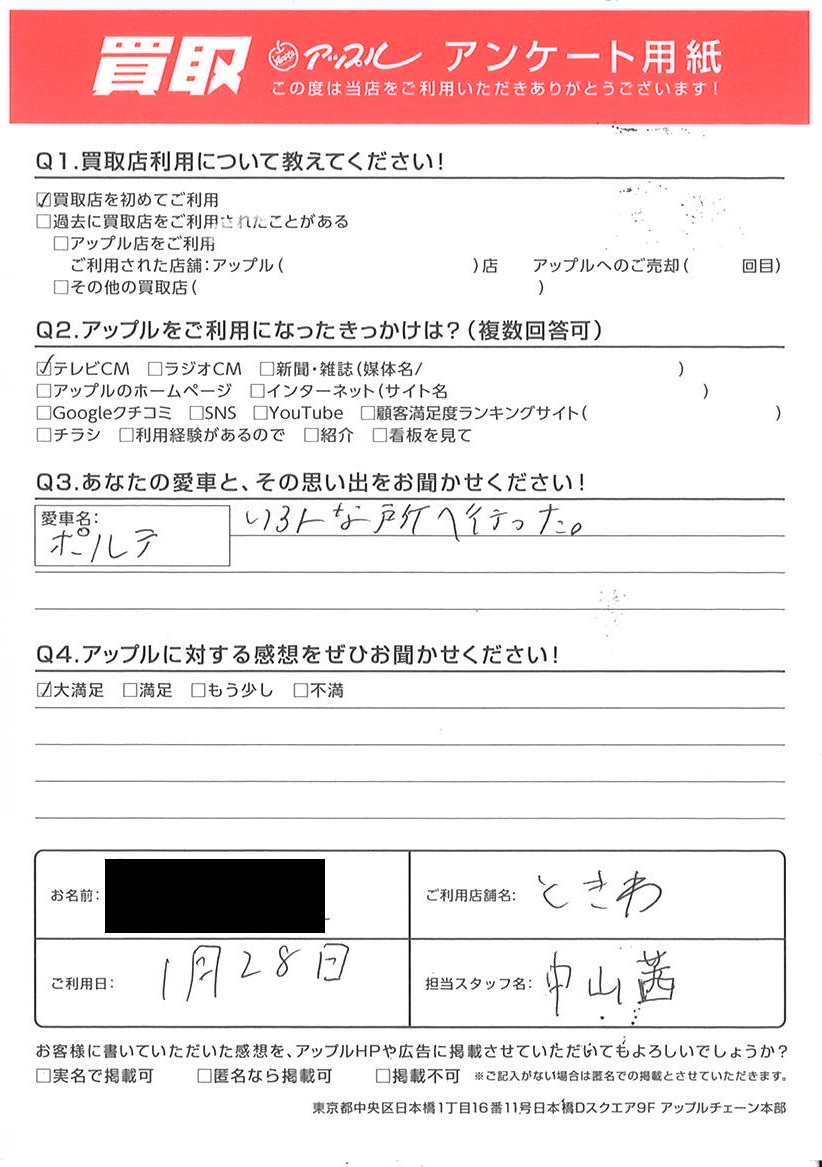 買取 アップル アンケート用紙
この度は当店をご利用いただきありがとうございます!
Q1.買取店利用について教えてください!
☑買取店を初めてご利用
□過去に買取店をご利用されたことがある
□アップル店をご利用
ご利用された店舗:アップル( )店 アップルへのご売却( 回目)
□その他の買取店( )
Q2.アップルをご利用になったきっかけは?(複数回答可)
☑テレビCM □ラジオCM □新聞・雑誌(媒体名/ )
□アップルのホームページ □インターネット(サイト名 )
□Googleクチコミ □SNS □YouTube □顧客満足度ランキングサイト( )
□チラシ □利用経験があるので □紹介 □看板を見て
Q3.あなたの愛車と、その思い出をお聞かせください!
愛車名:
ポルテ
いろんな所へ行った。
Q4.アップルに対する感想をぜひお聞かせください!
☑大満足 □満足 □もう少し □不満
お名前:
ご利用店舗名: ときわ
ご利用日: 1月28日
担当スタッフ名: 中山茜
お客様に書いていただいた感想を、アップルHPや広告に掲載させていただいてもよろしいでしょうか?
□実名で掲載可 □匿名なら掲載可 □掲載不可 ※ご記入がない場合は匿名での掲載とさせていただきます。
東京都中央区日本橋1丁目16番11号日本橋Dスクエア9F アップルチェーン本部